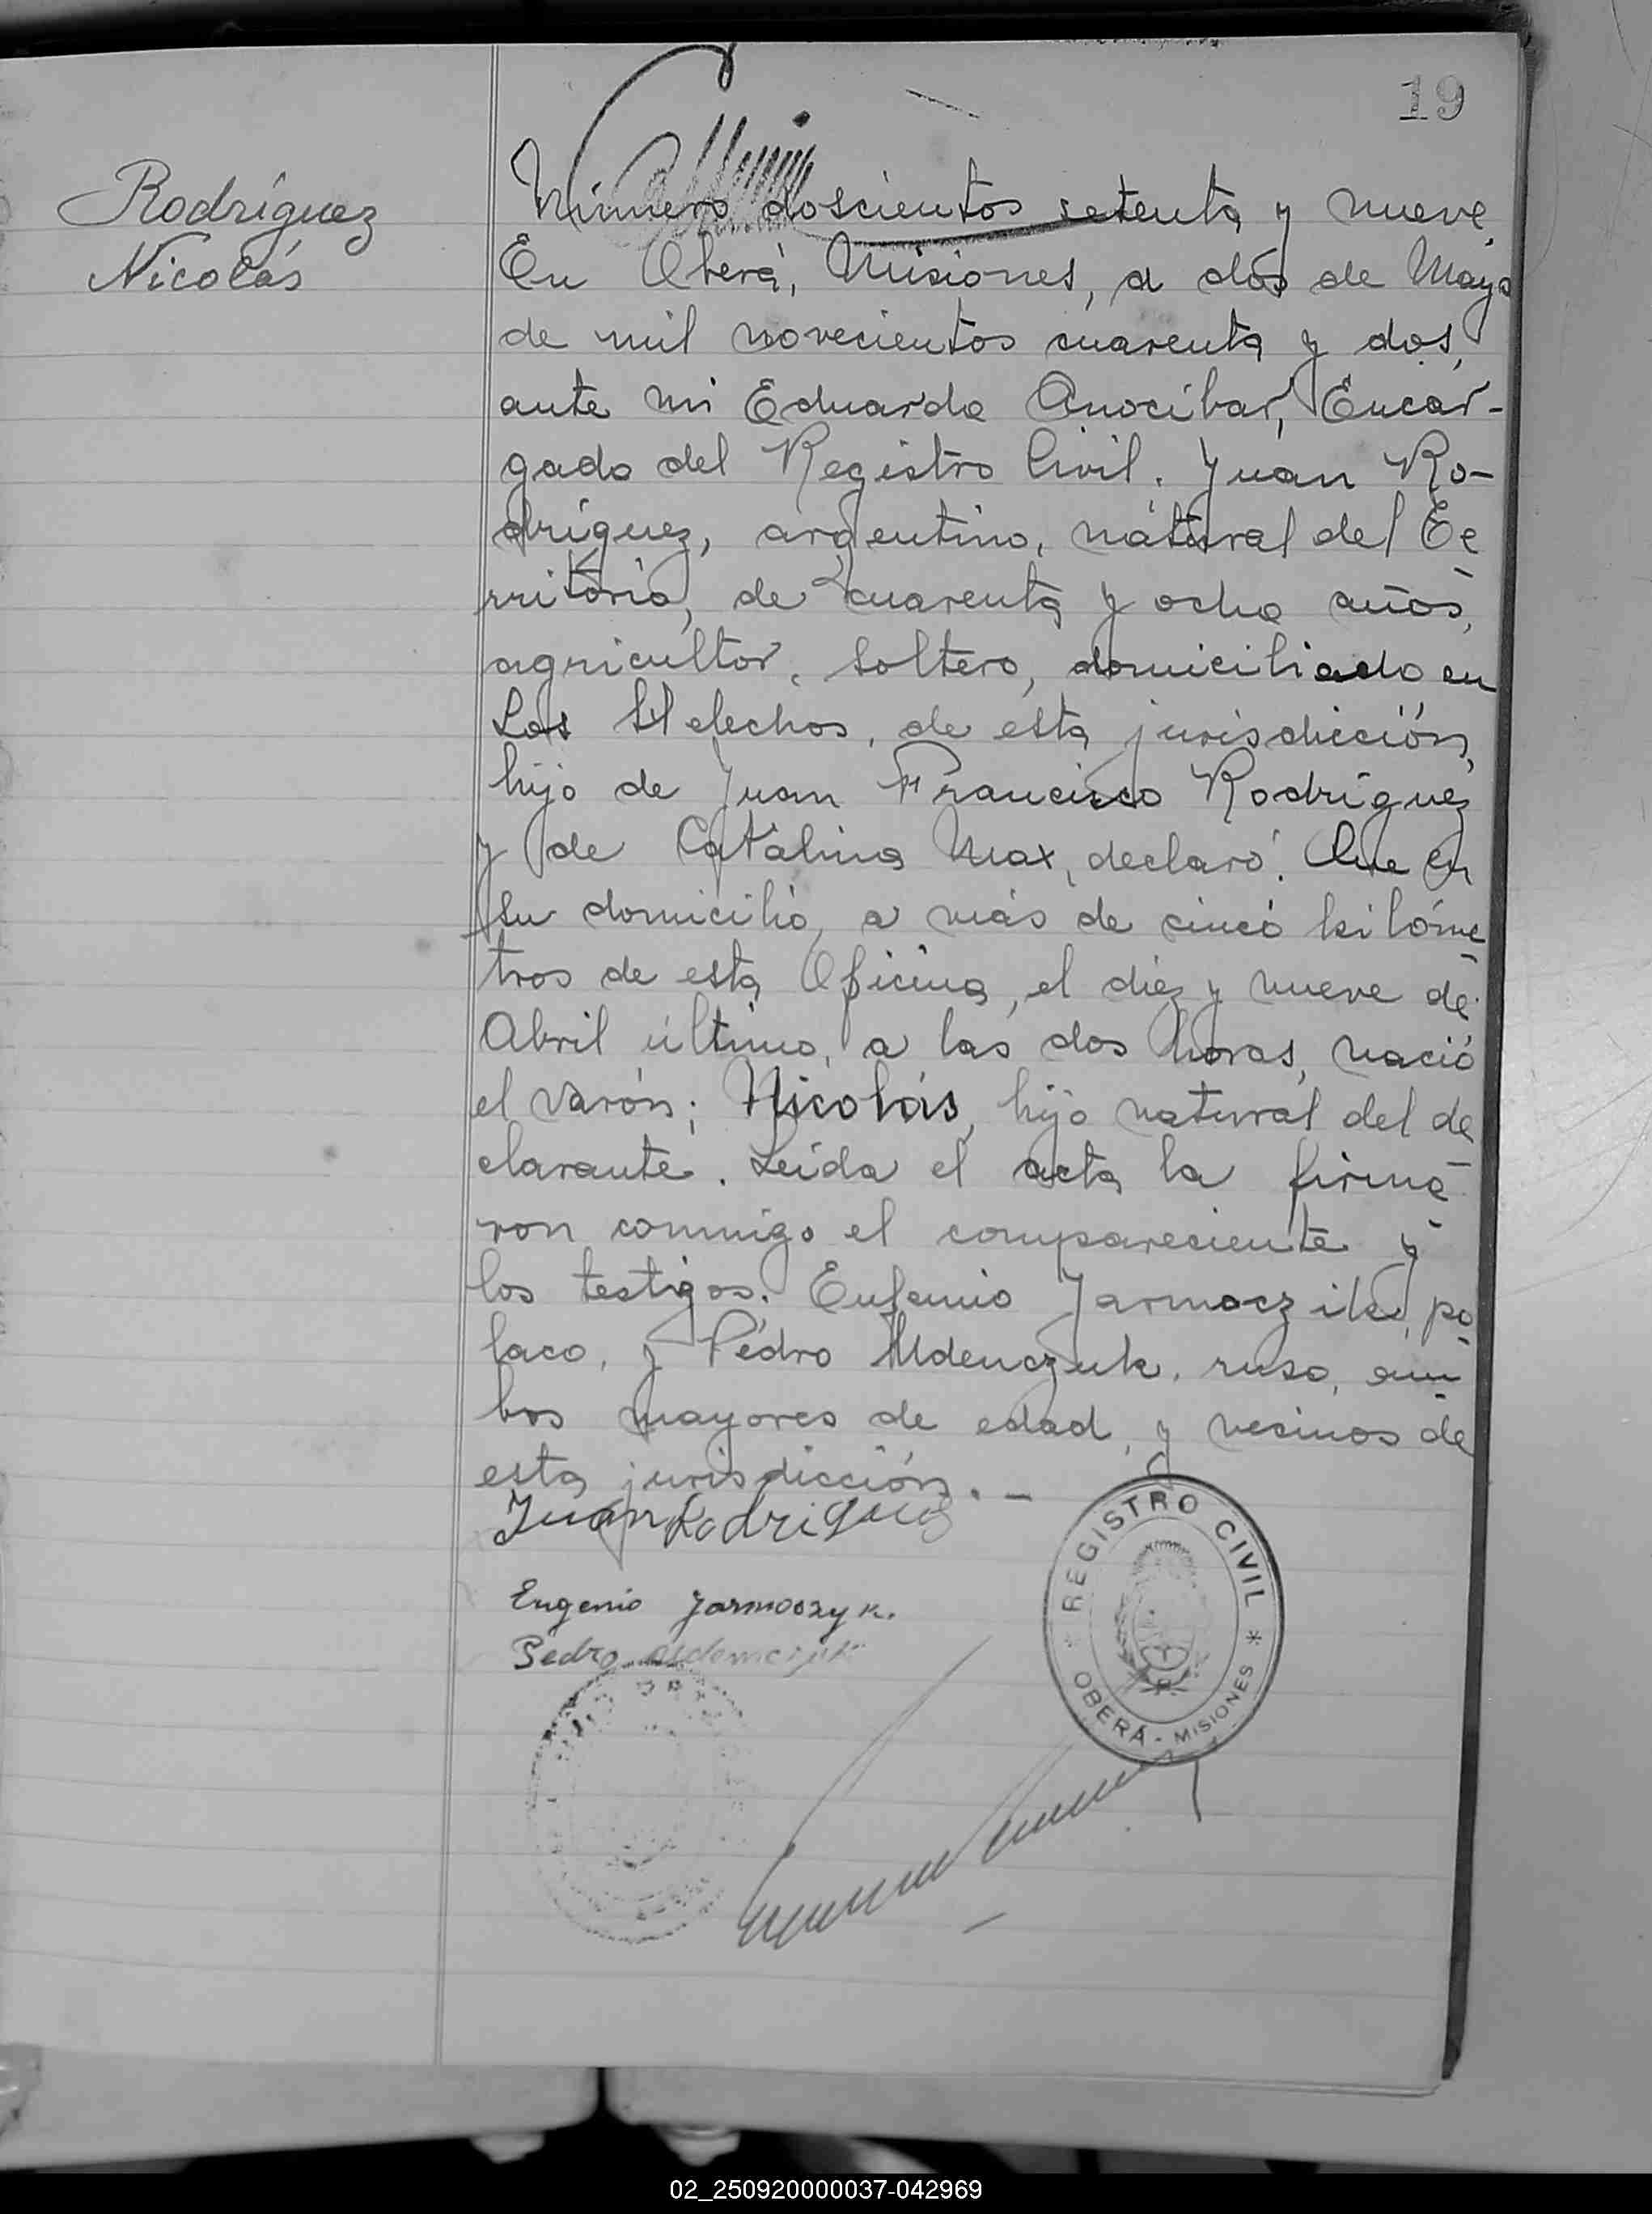 19
Rodríguez
Nicolás
Número doscientos setenta y nueve.
En Oberá, Misiones, a dos de Mayo
de mil novecientos cuarenta y dos,
ante mi Eduardo Anocíbar, Encar-
gado del Registro Civil. Juan Ro-
dríguez, argentino, natural del Te
rritorio, de cuarenta y ocho años,
agricultor, soltero, domiciliado en
Los Helechos, de esta jurisdicción,
hijo de Juan Francisco Rodríguez
y de Catalina Max, declaró: Que en
su domicilio, a más de cinco kilóme
tros de esta Oficina, el diez y nueve de
Abril último, a las dos horas, nació
el varón; Nicolás, hijo natural del de
clarante. Leída el acta la firma
ron conmigo el compareciente y
los testigos: Eugenio Jarmoczik, po
laco, y Pedro ruso, am
bos mayores de edad, y vecinos de
esta jurisdicción. —
Juan Rodriguez
Eugenio Jarmoczyk.
Pedro
REGISTRO CIVIL
* OBERÁ - MISIONES *
02_250920000037-042969